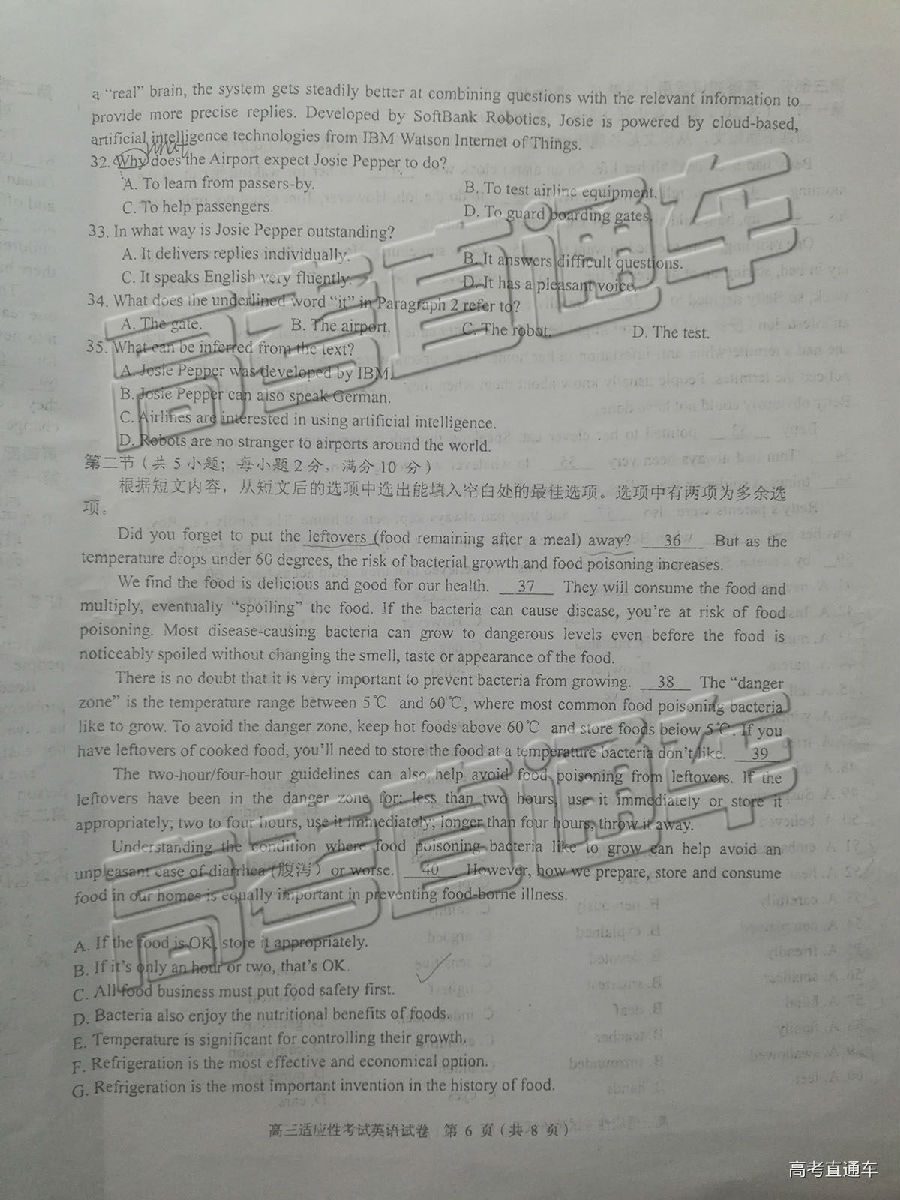 a “real” brain, the system gets steadily better at combining questions with the relevant information to
provide more precise replies. Developed by SoftBank Robotics, Josie is powered by cloud-based,
artificial intelligence technologies from IBM Watson Internet of Things.
What
32. Why does the Airport expect Josie Pepper to do?
A. To learn from passers-by. B. To test airline equipment.
C. To help passengers. D. To guard boarding gates.
33. In what way is Josie Pepper outstanding?
A. It delivers replies individually. B. It answers difficult questions.
C. It speaks English very fluently. D. It has a pleasant voice.
34. What does the underlined word “it” in Paragraph 2 refer to?
A. The gate. B. The airport. C. The robot. D. The test.
35. What can be inferred from the text?
A. Josie Pepper was developed by IBM.
B. Josie Pepper can also speak German.
C. Airlines are interested in using artificial intelligence.
D. Robots are no stranger to airports around the world.
第二节（共 5 小题；每小题 2 分，满分 10 分）
根据短文内容，从短文后的选项中选出能填入空白处的最佳选项。选项中有两项为多余选
项。
Did you forget to put the leftovers (food remaining after a meal) away? 36 But as the
temperature drops under 60 degrees, the risk of bacterial growth and food poisoning increases.
We find the food is delicious and good for our health. 37 They will consume the food and
multiply, eventually “spoiling” the food. If the bacteria can cause disease, you’re at risk of food
poisoning. Most disease-causing bacteria can grow to dangerous levels even before the food is
noticeably spoiled without changing the smell, taste or appearance of the food.
There is no doubt that it is very important to prevent bacteria from growing. 38 The “danger
zone” is the temperature range between 5℃ and 60℃, where most common food poisoning bacteria
like to grow. To avoid the danger zone, keep hot foods above 60℃ and store foods below 5℃. If you
have leftovers of cooked food, you’ll need to store the food at a temperature bacteria don’t like. 39
The two-hour/four-hour guidelines can also help avoid food poisoning from leftovers. If the
leftovers have been in the danger zone for: less than two hours, use it immediately or store it
appropriately; two to four hours, use it immediately; longer than four hours, throw it away.
Understanding the condition where food poisoning bacteria like to grow can help avoid an
unpleasant case of diarrhea (腹泻) or worse. 40 However, how we prepare, store and consume
food in our homes is equally important in preventing food-borne illness.
A. If the food is OK, store it appropriately.
B. If it’s only an hour or two, that’s OK.
C. All food business must put food safety first.
D. Bacteria also enjoy the nutritional benefits of foods.
E. Temperature is significant for controlling their growth.
F. Refrigeration is the most effective and economical option.
G. Refrigeration is the most important invention in the history of food.
高三适应性考试英语试卷 第 6 页（共 8 页）
高考直通车
高考直通车
高考直通车